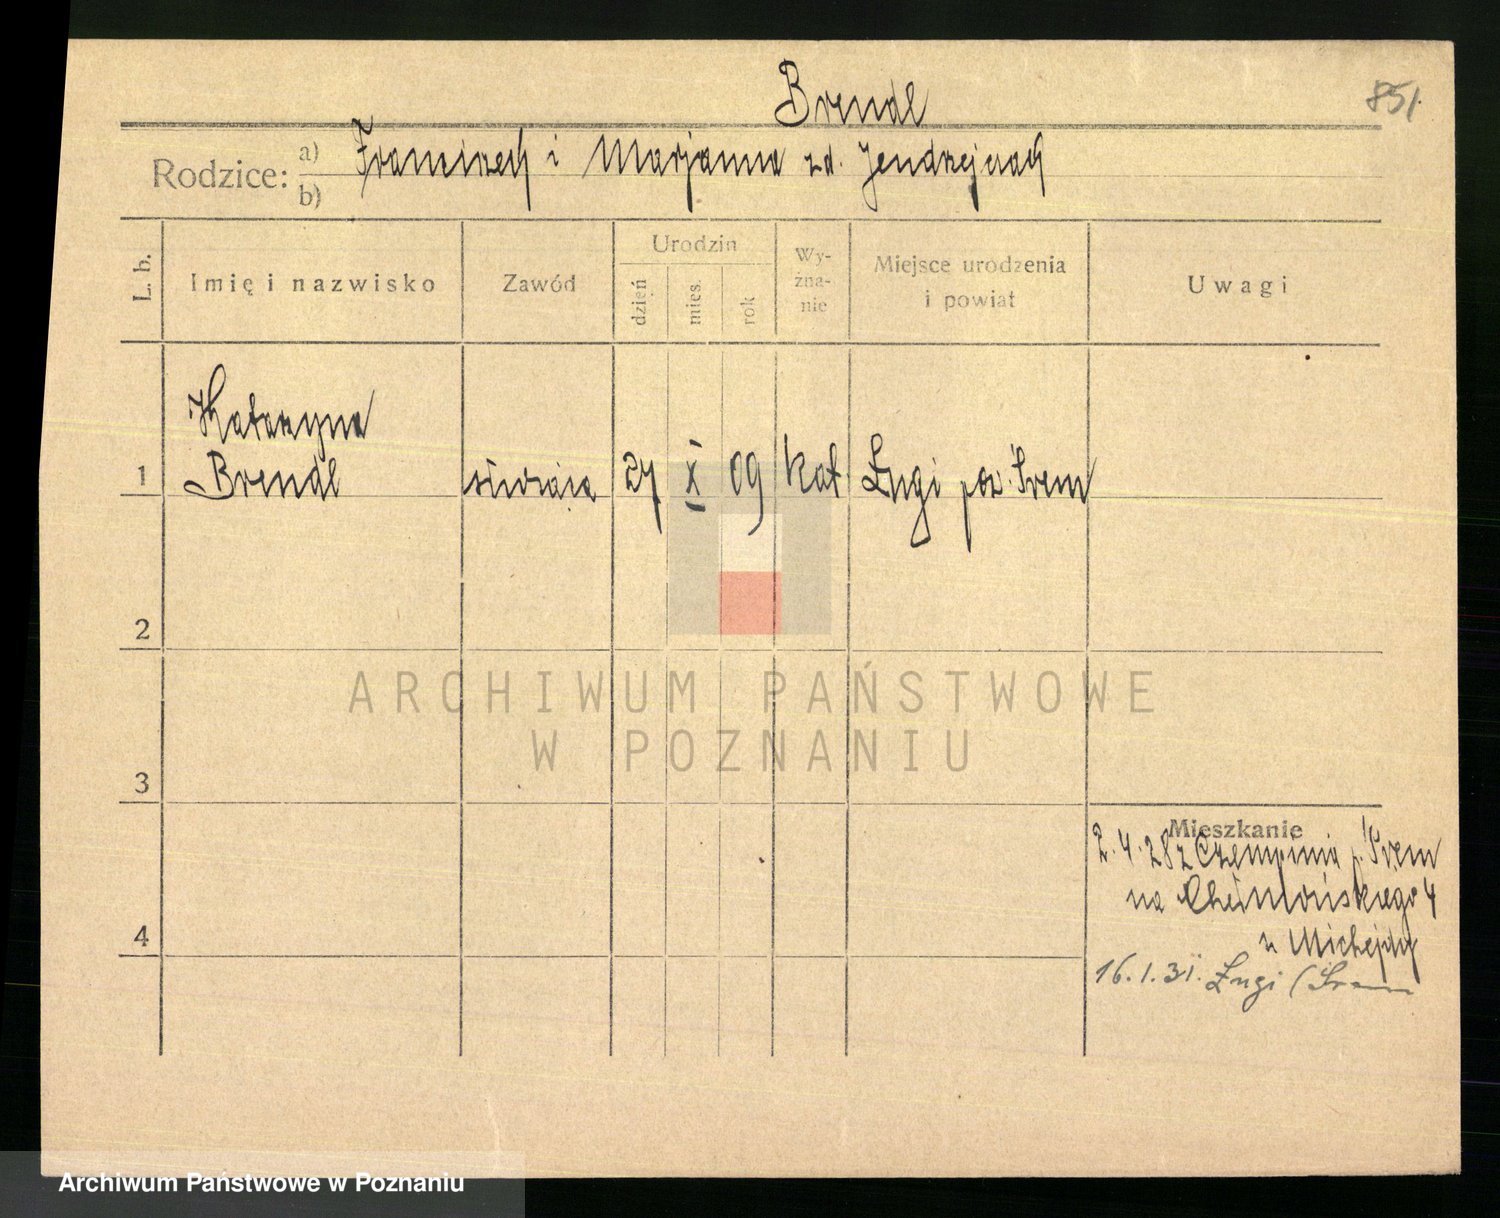 Brendl
851.
Rodzice: a) Franciszek i Marjanna zd. Jendrzejczak
b)
L. b.
Imię i nazwisko
Zawód
Urodzin
dzień
mies.
rok
Wy-
zna-
nie
Miejsce urodzenia
i powiat
Uwagi
Katarzyna
1 Brendl służąca 27 X 09 kat Ługi pow. Śrem
2
3
4
ARCHIWUM PAŃSTWOWE
W POZNANIU
Mieszkanie
2.4.28 z Czempinia p. Śrem
na Chełmońskiego 4
u Michejdy
16.1.31. Ługi (Śrem
Archiwum Państwowe w Poznaniu